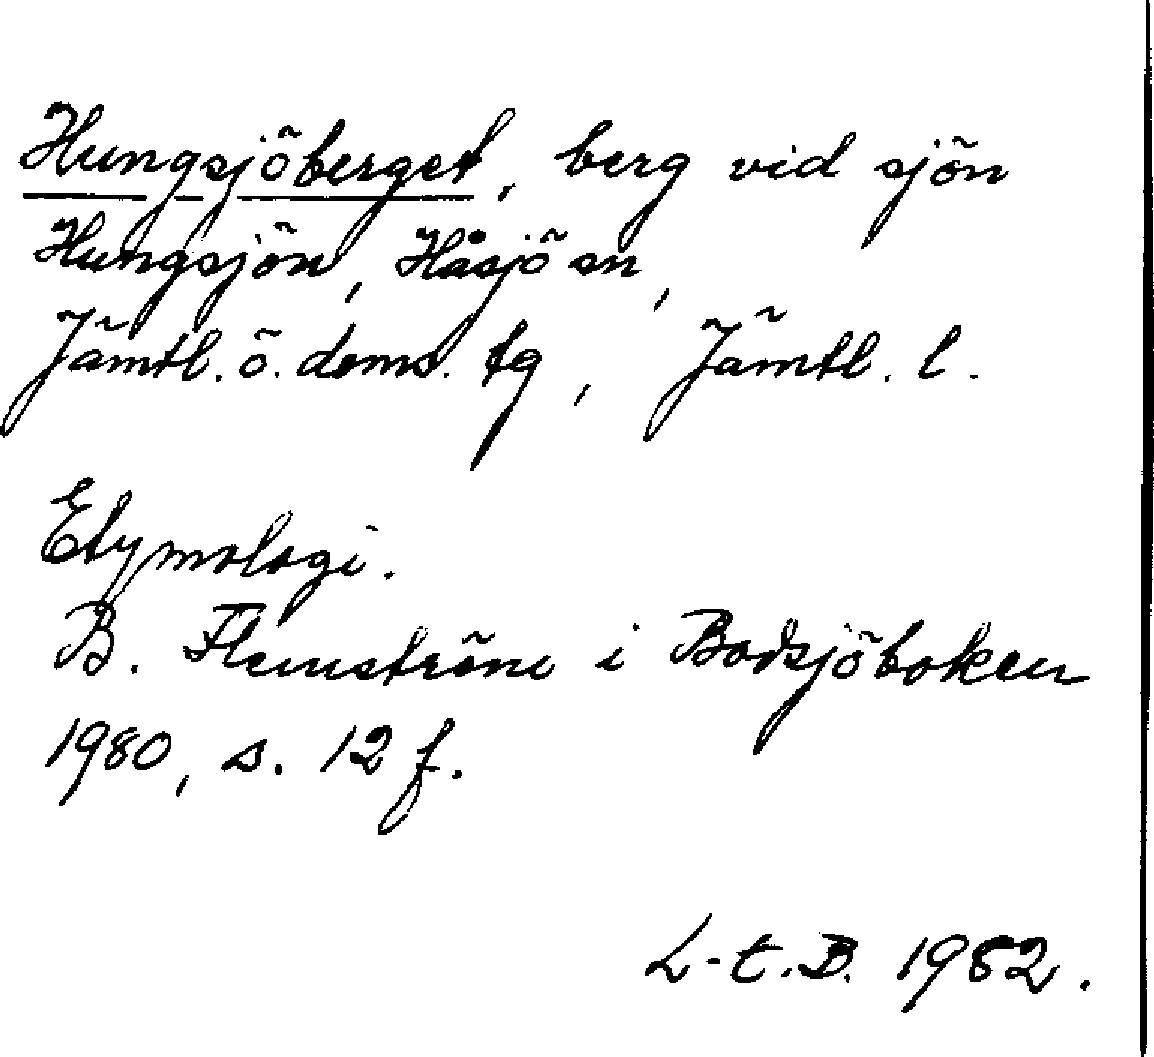 Hungsjöberget, berg vid sjön
Hungsjön, Håsjö sn,
Jämtl. ö. doms. tg, Jämtl. l.
Etymologi.
B. Flemström i Bodsjöboken
1980, s. 12 f.
L-E.B. 1982.